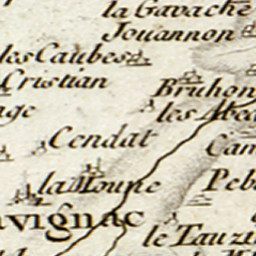 la Gavache
Jouannon
les Caubes
Cristian
Bruhon
les Abe
Cendat
Can
la Moune
Peb
vignac
le Tauzi